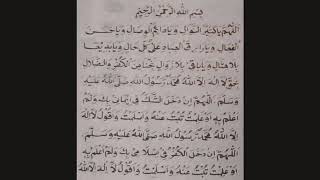 بِسْمِ اللهِ الرَّحْمٰنِ الرَّحِيْمِ
اَللّٰهُمَّ يَا كَثِيْرَ النَّوَالِ وَيَا دَائِمَ الْوِصَالِ وَيَا حَسَنَ
الْفِعَالِ وَيَا رَازِقَ الْعِبَادِ عَلٰى كُلِّ حَالٍ وَيَا بَدِيْعًا
بِلَا مِثَالٍ وَيَا بَاقِيْ بِلَا زَوَالٍ نَجِّنَا مِنَ الْكُفْرِ وَالضَّلَالِ
بِحَقِّ لَا اِلٰهَ اِلَّا اللهُ مُحَمَّدٌ رَسُوْلُ اللهِ صَلَّى اللهُ عَلَيْهِ
وَسَلَّمَ ۔ اَللّٰهُمَّ اِنْ دَخَلَ الشَّكُّ فِيْ اِيْمَانِيْ بِكَ وَلَمْ
اَعْلَمْ بِهٖ اَوْ عَلِمْتُ تُبْتُ عَنْهُ وَاَسْلَمْتُ وَاَقُوْلُ لَا اِلٰهَ
اِلَّا اللهُ مُحَمَّدٌ رَسُوْلُ اللهِ صَلَّى اللهُ عَلَيْهِ وَسَلَّمَ
اَللّٰهُمَّ اِنْ دَخَلَ الْكُفْرُ فِيْ اِسْلَامِيْ بِكَ وَلَمْ اَعْلَمْ بِهٖ
اَوْ عَلِمْتُ تُبْتُ عَنْهُ وَاَسْلَمْتُ وَاَقُوْلُ لَا اِلٰهَ اِلَّا اللهُ